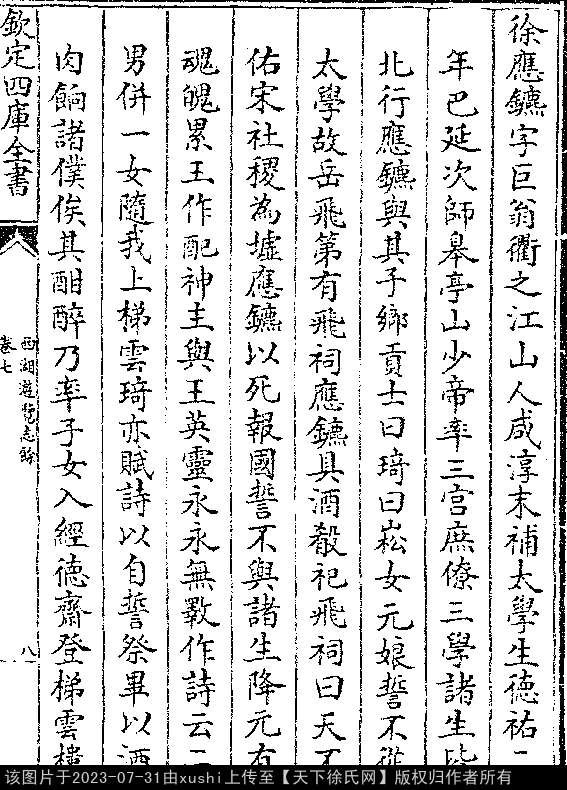 徐應鑣字巨翁衢之江山人咸淳末補太學生德祐二
年巴延次師皋亭山少帝率三宮庶僚三學諸生皆
北行應鑣與其子鄉貢士曰琦曰崧女元娘誓不從
太學故岳飛第有飛祠應鑣具酒殽祀飛祠曰天不
佑宋社稷為墟應鑣以死報國誓不與諸生降元有
魂魄累王作配神主與王英靈永永無斁作詩云二
男併一女隨我上梯雲琦亦賦詩以自誓祭畢以酒
肉餉諸僕俟其酣醉乃率子女入經德齋登梯雲樓
欽定四庫全書
西湖遊覽志餘
卷七
八
该图片于2023-07-31由xushi上传至【天下徐氏网】版权归作者所有